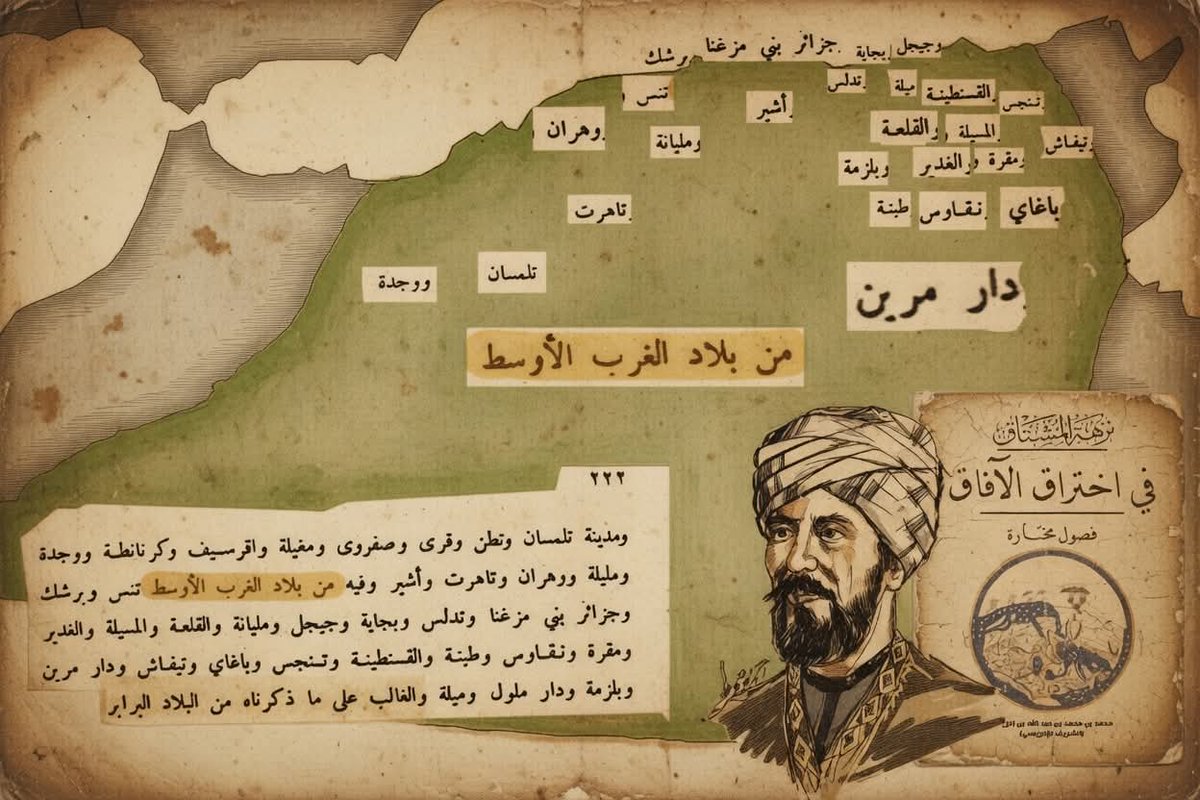 وجيجل
بجاية
جزائر بني مزغنا
برشك
تدلس
ميلة
القسنطينة
تنجس
تنس و
أشير
وهران
ومليانة
والقلعة
المسيلة و
وتيفاش
وبلزمة
والغدير
ومقرة و
تاهرت
طبنة
نقاوس
باغاي
ووجدة
تلمسان
دار مرين
من بلاد الغرب الأوسط
نزهة المشتاق
في اختراق الآفاق
فصول مختارة
٢٢٢
ومدينة تلمسان وتطن وقرى وصفروى ومغيلة واقرسيف وكرنانطة ووجدة
ومليلة ووهران وتاهرت وأشير وفيه من بلاد الغرب الأوسط تنس وبرشك
وجزائر بني مزغنا وتدلس وبجاية وجيجل ومليانة والقلعة والمسيلة والغدير
ومقرة ونقاوس وطبنة والقسنطينة وتنجس وباغاي وتيفاش ودار مرين
وبلزمة ودار ملول وميلة والغالب على ما ذكرناه من البلاد البرابر